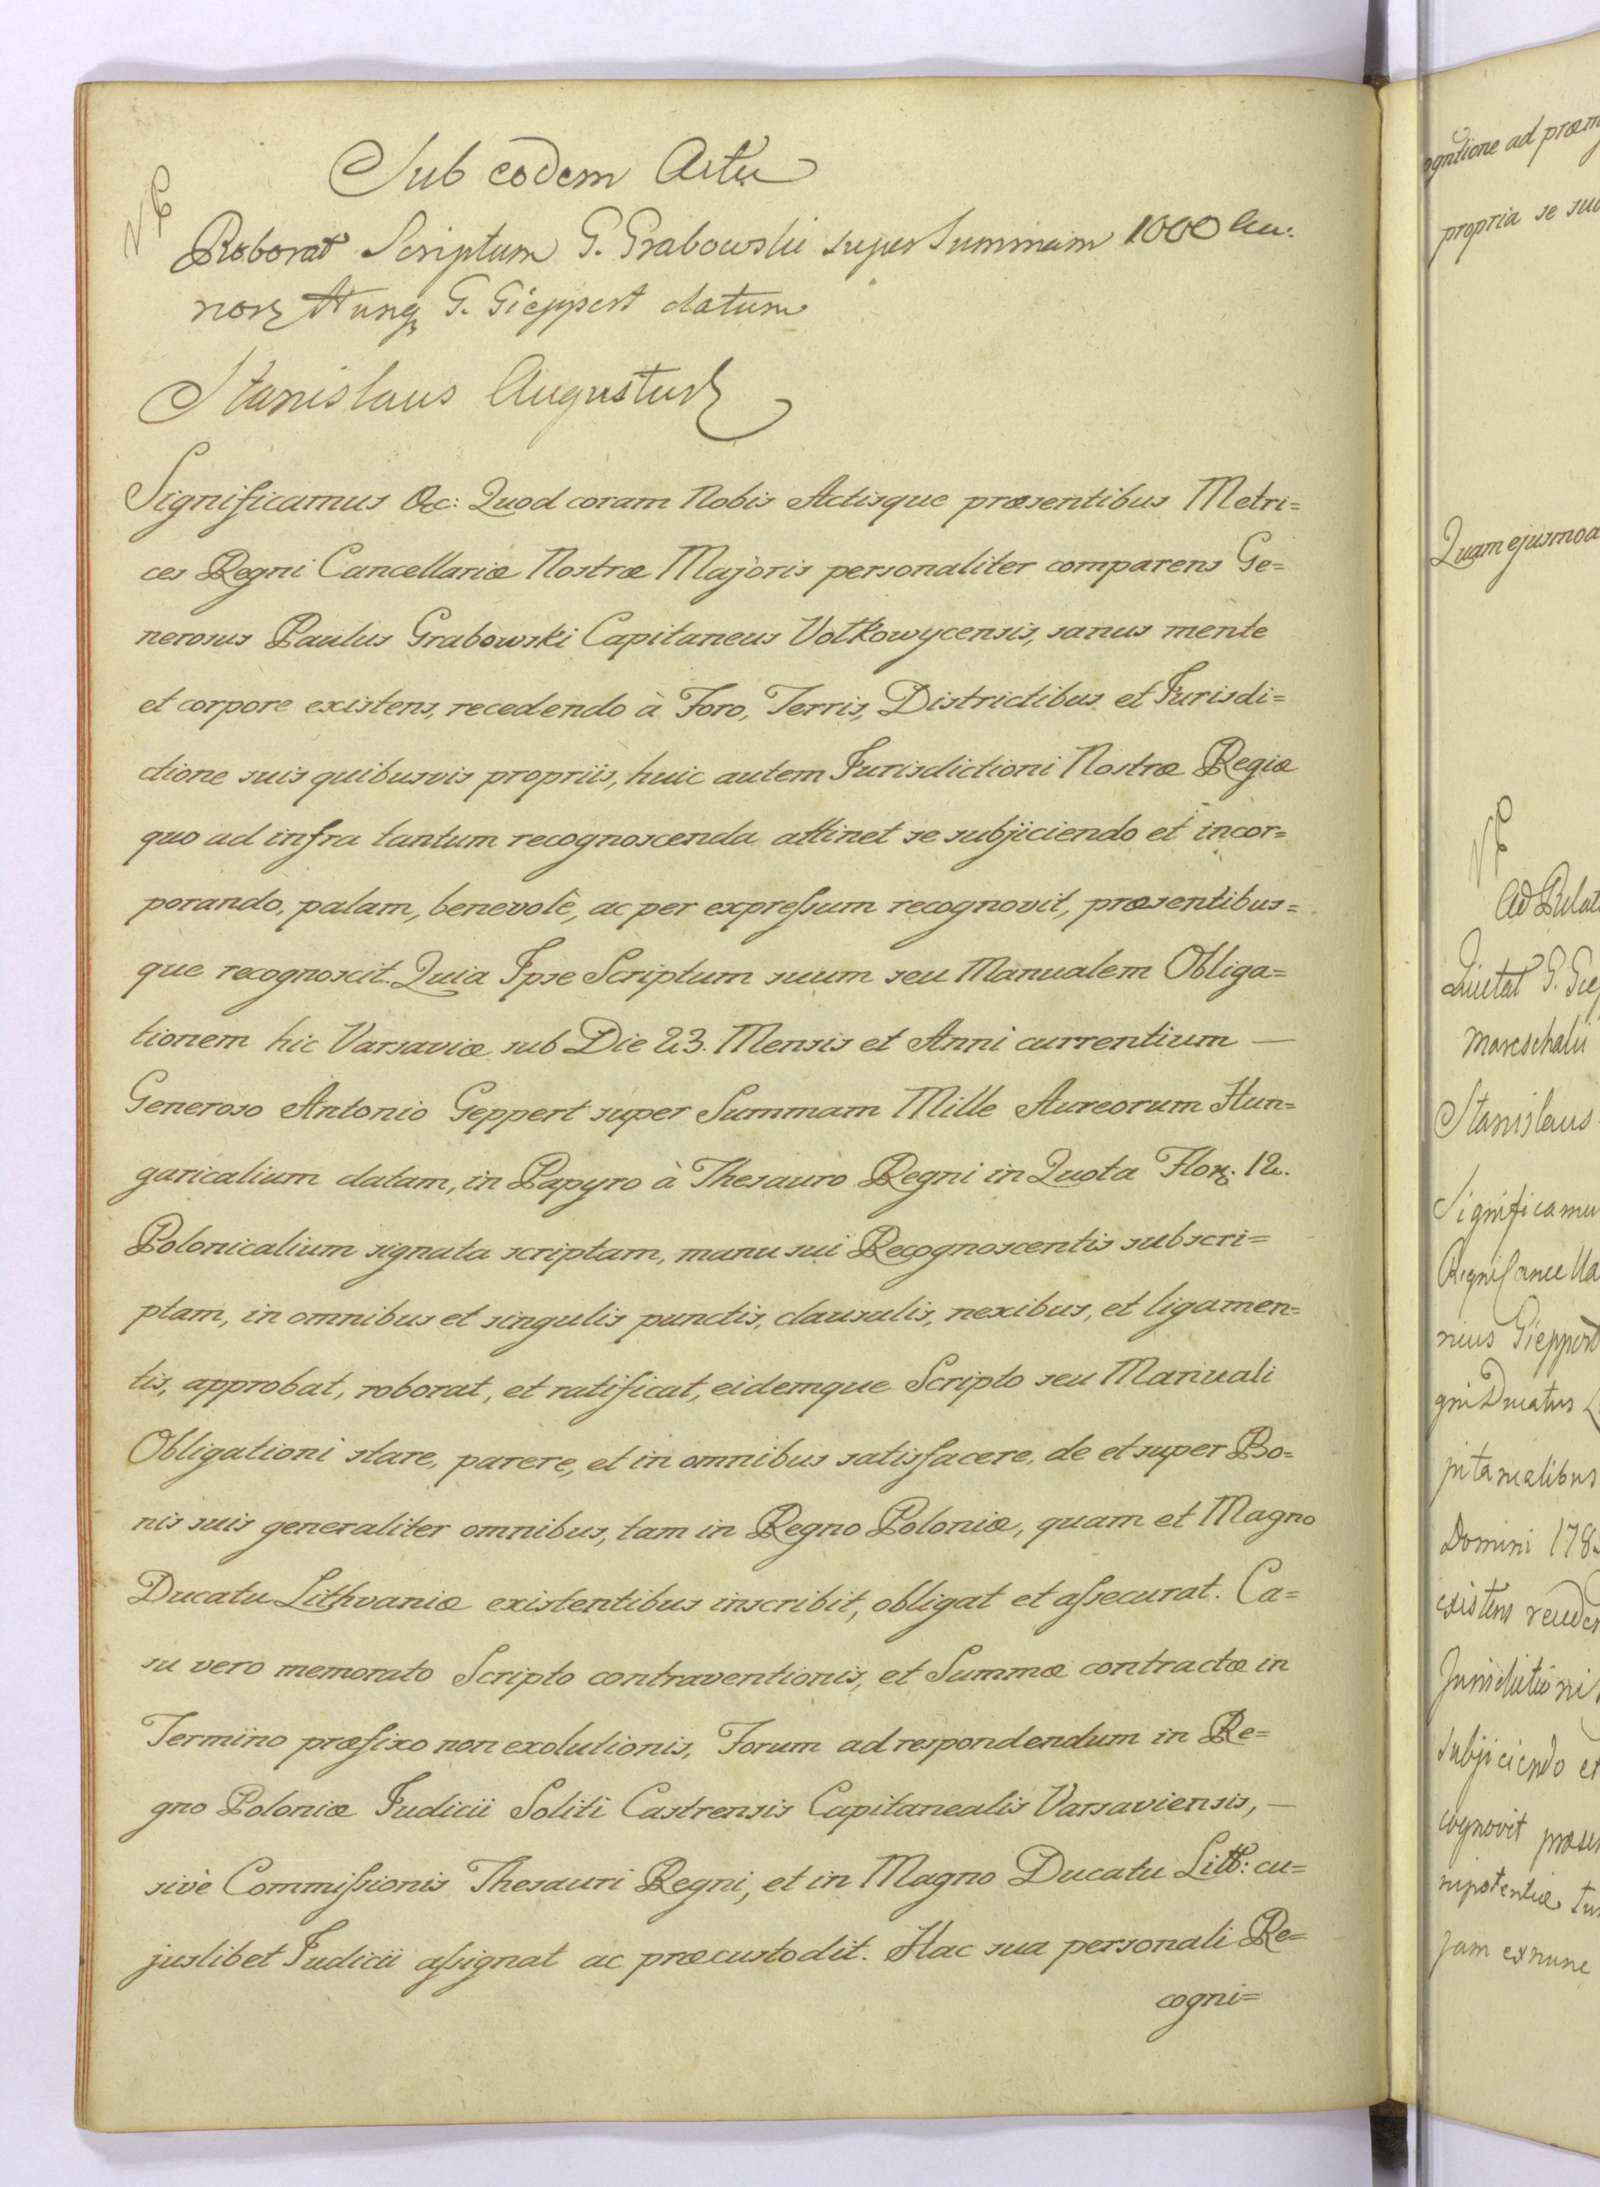 Sub eodem Actu
Roborat Scriptum G. Grabowski super Summam 1000 Au-
Hung G. Gieppert datum
Stanislaus Augustus
Significamus &c: Quod coram Nobis Actisque præsentibus Metri=
ces Regni Cancellariæ Nostræ Majoris personaliter comparens Ge=
nerosus Paulus Grabowski Capitaneus Vołkowycensis, sanus mente
et corpore existens, recedendo à Foro, Terris, Districtibus et Jurisdi=
ctione suis quibusvis propriis, huic autem Jurisdictioni Nostræ Regiæ
quo ad infra tantum recognoscenda attinet se subjiciendo et incor=
porando, palam, benevolè, ac per expreſsum recognovit, præsentibus=
que recognoscit. Quia Ipse Scriptum suum seu Manualem Obliga=
tionem hic Varsaviæ sub Die 23. Mensis et Anni currentium —
Generoso Antonio Geppert super Summam Mille Aureorum Hun=
garicalium datam, in Papyro à Thesauro Regni in Quota Flor. 12.
Polonicalium signata scriptam, manu sui Recognoscentis subscri=
ptam, in omnibus et singulis punctis, clausulis, nexibus, et ligamen=
tis, approbat, roborat, et ratificat, eidemque Scripto seu Manuali
Obligationi stare, parere, et in omnibus satisfacere, de et super Bo=
nis suis generaliter omnibus, tam in Regno Poloniæ, quam et Magno
Ducatu Lithvaniæ existentibus inscribit, obligat et aſsecurat. Ca=
su vero memorato Scripto contraventionis, et Summæ contractæ in
Termino præfixo non exolutionis, Forum ad respondendum in Re=
gno Poloniæ Judicii Soliti Castrensis Capitanealis Varsaviensis, —
sivè Commiſsionis Thesauri Regni, et in Magno Ducatu Litt: cu=
juslibet Judicii aſsignat ac præcustodit. Hac sua personali Re=
cogni=
ogntione ad præm
propria se su
Quam ejusmod
Ad Relat
Quietat G. Giep
Mareschalii
Stanislaus
Significamu
Regni Cancella
nius Gieppert
gni Ducatus
pitanealibus
Domini 178
existens
Jurisdictioni
subjiciendo et
cognovit præsen
nipotentiæ
jam exnunc